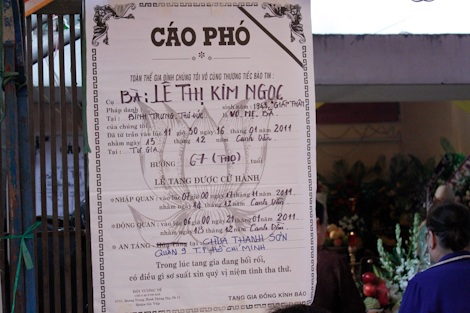 CÁO PHÓ
TOÀN THỂ GIA ĐÌNH CHÚNG TÔI VÔ CÙNG THƯƠNG TIẾC BÁO TIN:
Cụ BÀ: LÊ THỊ KIM NGỌC
Pháp danh sinh năm 1943
Tại: BÌNH TRƯNG, THỦ ĐỨC
của chúng tôi: VỢ, MẸ, BÀ
Đã từ trần vào lúc 11 giờ 30 ngày 16 tháng 01 năm 2011
nhằm ngày 13 tháng 12 năm Canh Dần
Tại: TƯ GIA
HƯỞNG 67 (THỌ) tuổi
LỄ TANG ĐƯỢC CỬ HÀNH
NHẬP QUAN: vào lúc 01 giờ 00 ngày 17 tháng 01 năm 2011
nhằm ngày 14 tháng 12 năm Canh Dần
ĐỘNG QUAN: vào lúc 06 giờ 00 ngày 21 tháng 01 năm 2011
nhằm ngày tháng 12 năm Canh Dần
AN TÁNG - Hỏa Táng tại: CHÙA THANH SƠN
QUẬN 9 T.P HỒ CHÍ MINH
Trong lúc tang gia đang bối rối,
có điều gì sơ suất xin quý vị niệm tình tha thứ.
TANG GIA ĐỒNG KÍNH BÁO